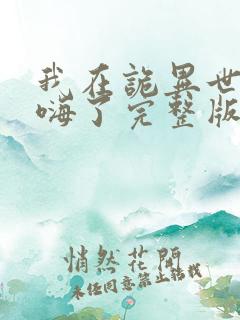 我在詭異世
嗨了完整版
悄然花開
未经同意禁止轉載